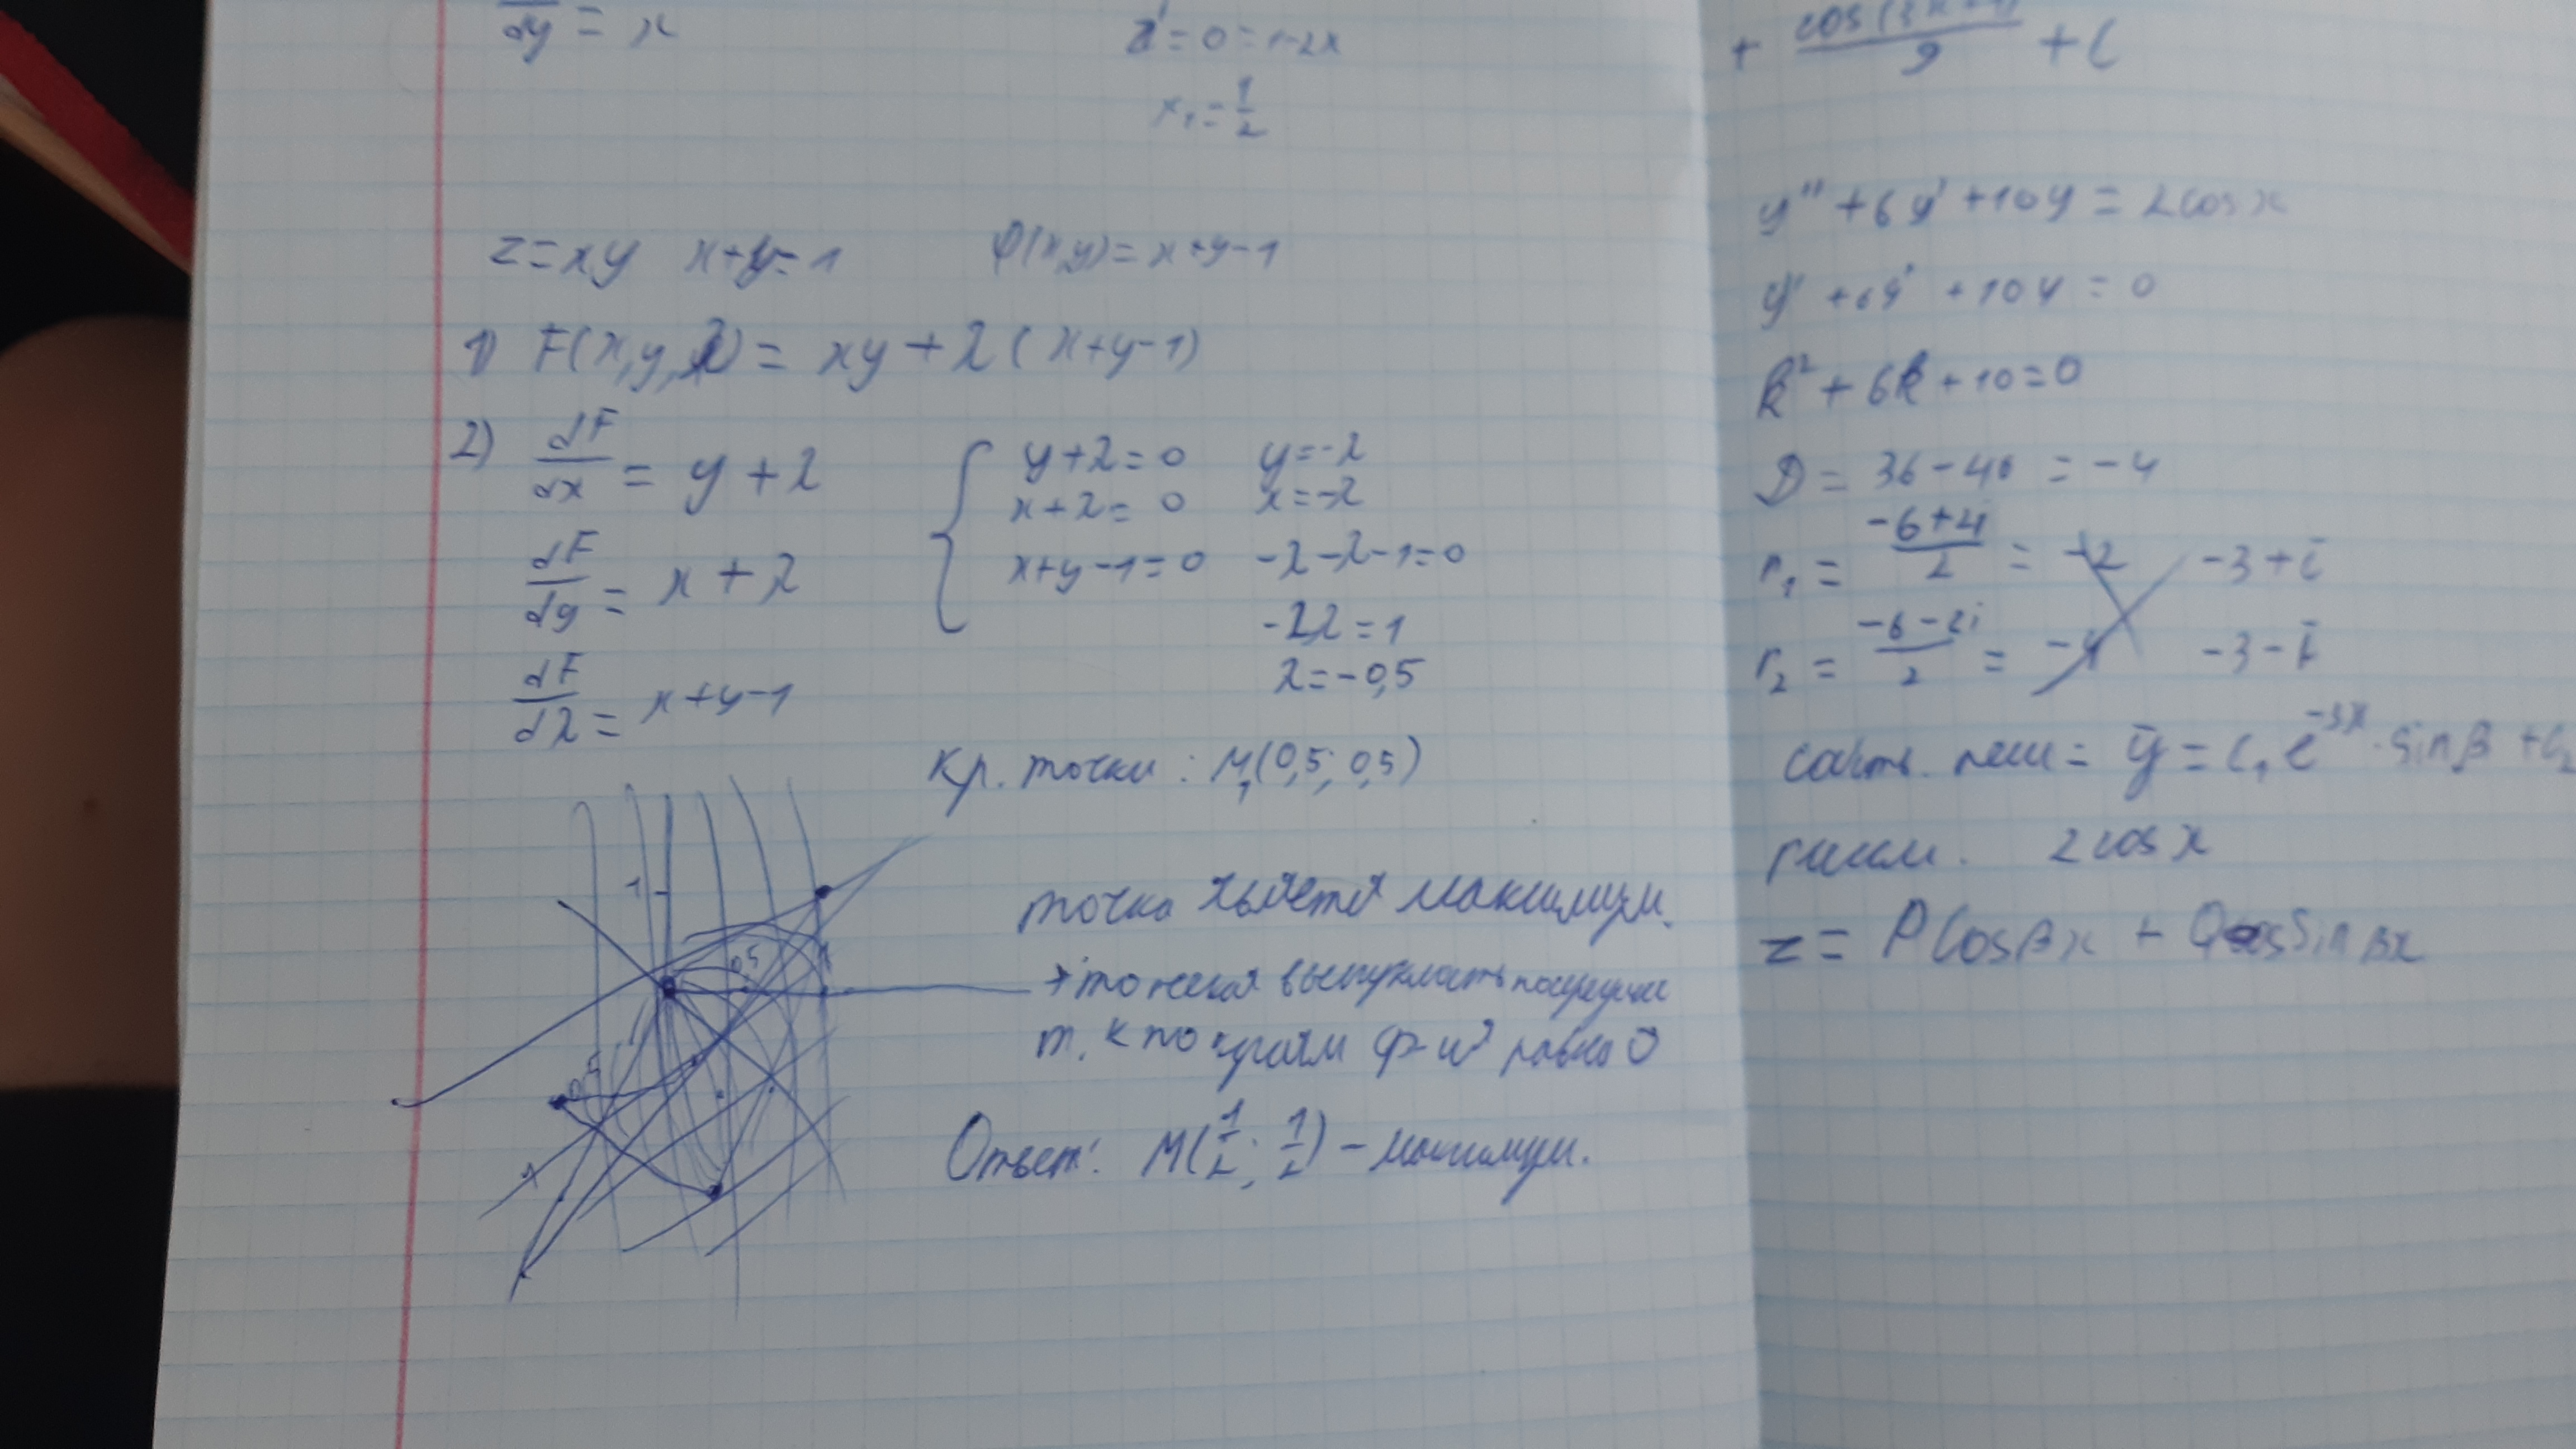 dy = x
z' = 0 = 1-2x
x₁ = 1/2
z = xy x+y=1 φ(x,y) = x+y-1
1) F(x,y,λ) = xy + λ(x+y-1)
2) dF/dx = y + λ
dF/dy = x + λ
dF/dλ = x+y-1
y+λ=0 y=-λ
x+λ=0 x=-λ
x+y-1=0 -λ-λ-1=0
-2λ=1
λ=-0,5
Кр. точки: M₁(0,5; 0,5)
1
0,5
1
0,5
1
точка является максимум.
выпуклость посередине
т. к по краям ф-ия равна 0
Ответ: M(1/2; 1/2) - максимум.
+ cos( )/9 + C
y'' + 6y' + 10y = 2cosx
y'' + 6y' + 10y = 0
k² + 6k + 10 = 0
D = 36-40 = -4
r₁ = (-6+4)/2 = -3+i
r₂ = (-6-2i)/2 = -3-i
ȳ = C₁e^-3x · sinβ + C₂
2cosx
z = Pcosβx + Q Sinβx